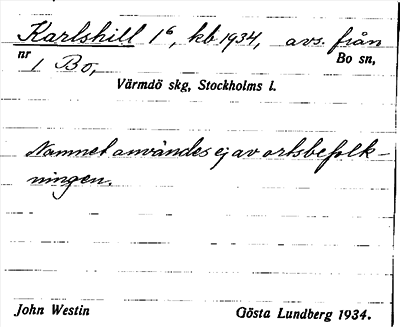 Karlshill 1⁶, kb 1934, avs. från
nr 1 Bo, Bo sn,
Värmdö skg, Stockholms l.
Namnet användes ej av ortsbefolk-
ningen.
John Westin Gösta Lundberg 1934.